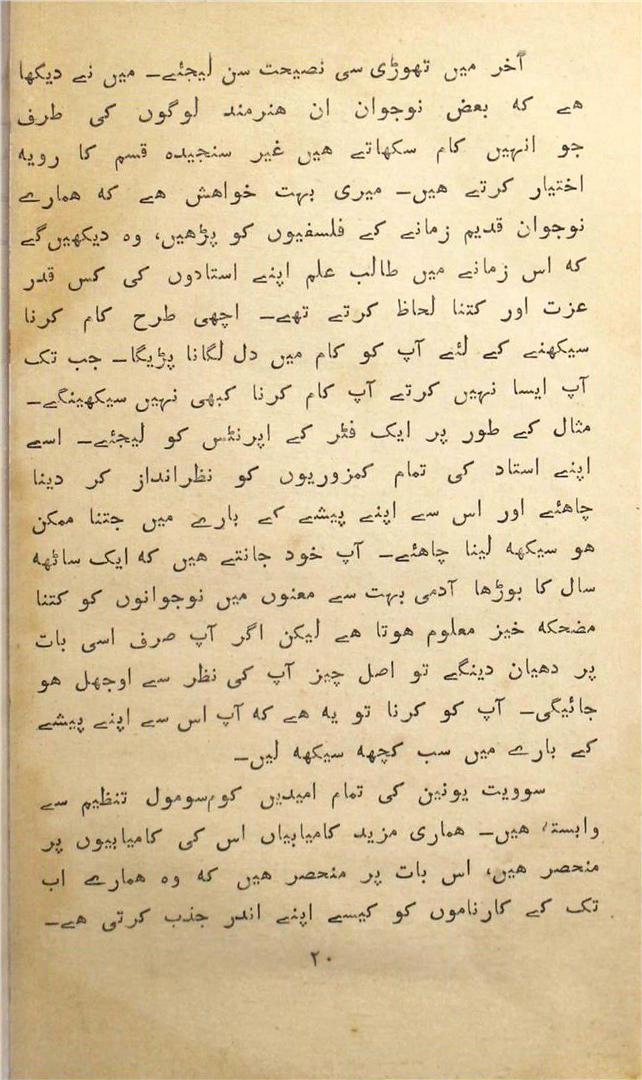 آخر میں تھوڑی سی نصیحت سن لیجئے۔ میں نے دیکھا
ھے کہ بعض نوجوان ان ھنرمند لوگوں کی طرف
جو انہیں کام سکھاتے ھیں غیر سنجیدہ قسم کا رویہ
اختیار کرتے ھیں۔ میری بہت خواھش ھے کہ ھمارے
نوجوان قدیم زمانے کے فلسفیوں کو پڑھیں، وہ دیکھیں گے
کہ اس زمانے میں طالب علم اپنے استادوں کی کس قدر
عزت اور کتنا لحاظ کرتے تھے۔ اچھی طرح کام کرنا
سیکھنے کے لئے آپ کو کام میں دل لگانا پڑیگا۔ جب تک
آپ ایسا نہیں کرتے آپ کام کرنا کبھی نہیں سیکھینگے۔
مثال کے طور پر ایک فٹر کے اپرنٹس کو لیجئے۔ اسے
اپنے استاد کی تمام کمزوریوں کو نظرانداز کر دینا
چاھئے اور اس سے اپنے پیشے کے بارے میں جتنا ممکن
ھو سیکھ لینا چاھئے۔ آپ خود جانتے ھیں کہ ایک ساٹھہ
سال کا بوڑھا آدمی بہت سے معنوں میں نوجوانوں کو کتنا
مضحکہ خیز معلوم ھوتا ھے لیکن اگر آپ صرف اسی بات
پر دھیان دینگے تو اصل چیز آپ کی نظر سے اوجھل ھو
جائیگی۔ آپ کو کرنا تو یہ ھے کہ آپ اس سے اپنے پیشے
کے بارے میں سب کچھہ سیکھہ لیں۔
سوویت یونین کی تمام امیدیں کومسومول تنظیم سے
وابستہ ھیں۔ ھماری مزید کامیابیاں اس کی کامیابیوں پر
منحصر ھیں، اس بات پر منحصر ھیں کہ وہ ھمارے اب
تک کے کارناموں کو کیسے اپنے اندر جذب کرتی ھے۔
۲۰